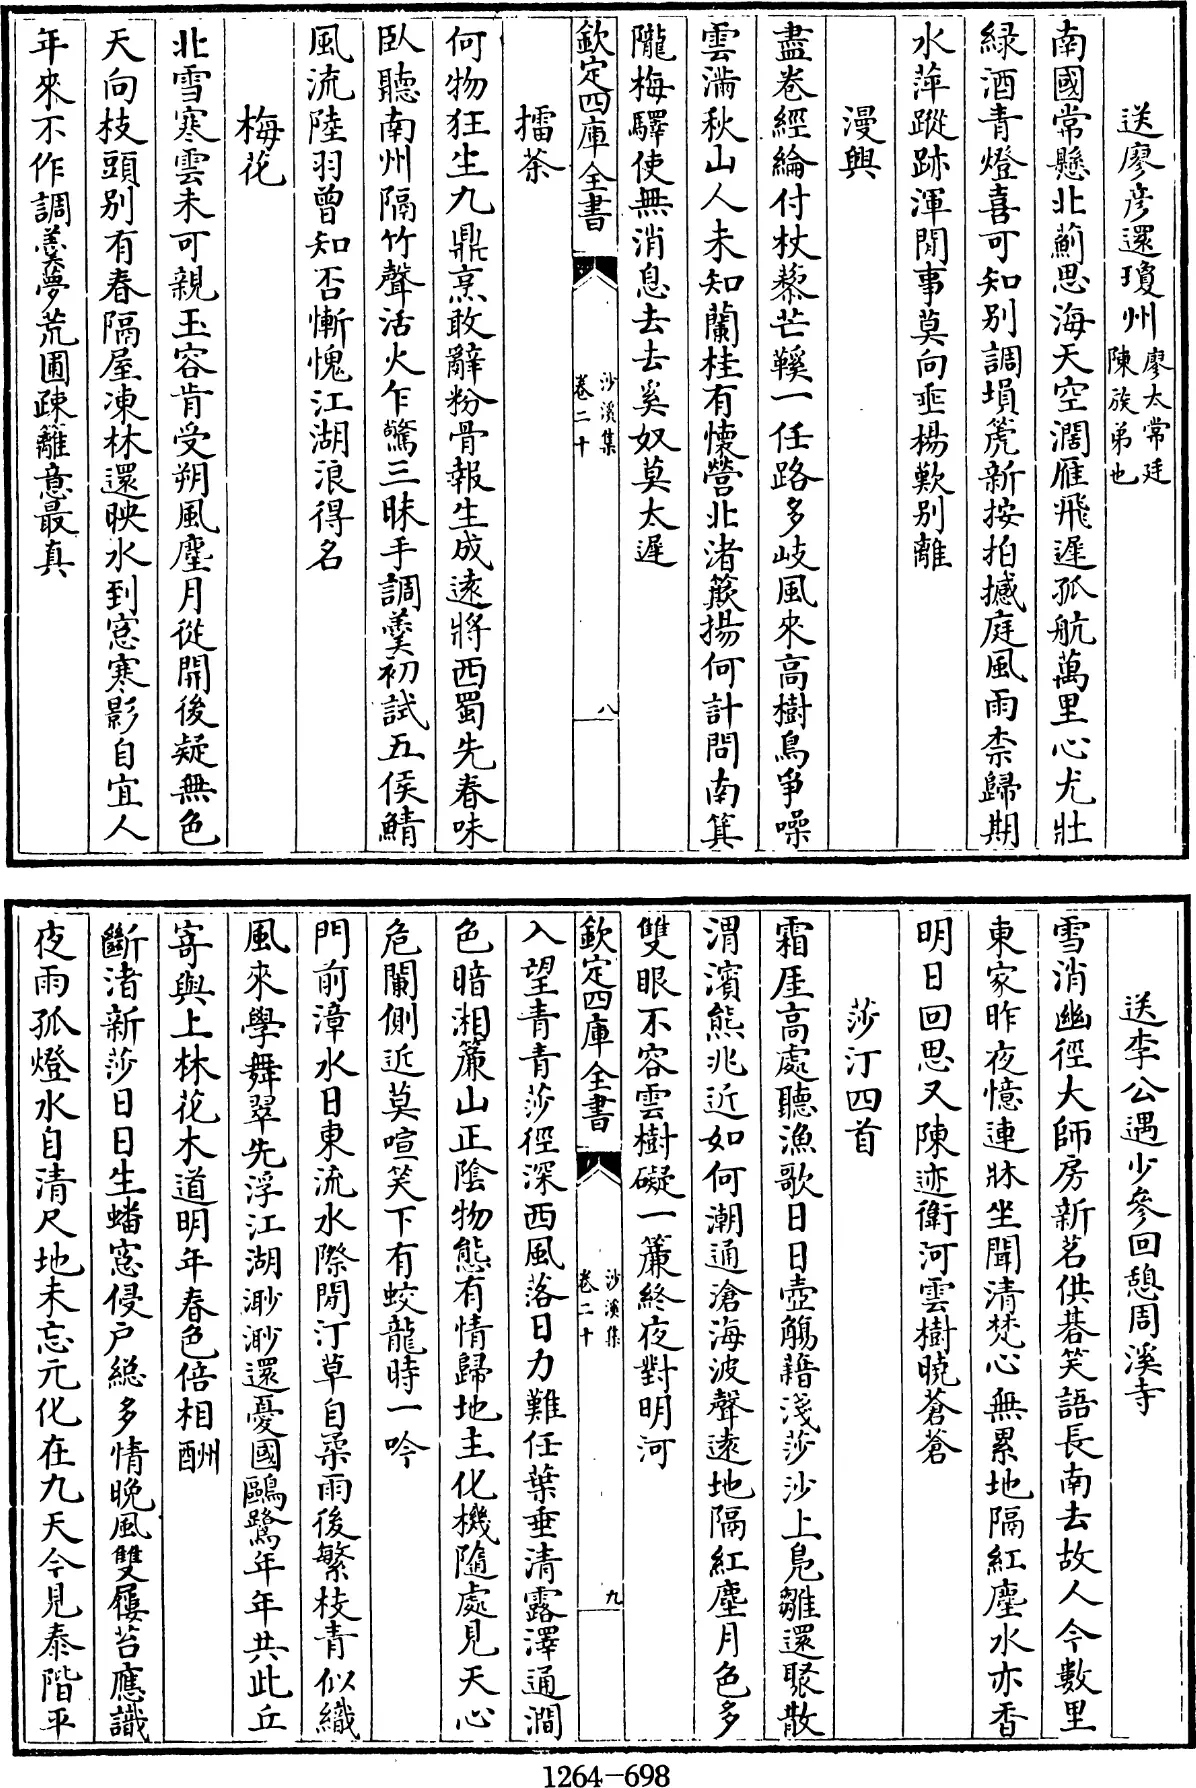 送廖彦還瓊州廖太常廷陳族弟也
南國常懸北薊思海天空濶雁飛遲孤航萬里心尤壯
緑酒青燈喜可知别調塤箎新按拍撼庭風雨柰歸期
水萍蹤跡渾閒事莫向垂楊歎别離
漫興
盡卷經綸付杖藜芒鞵一任路多岐風來高樹鳥爭噪
雲滿秋山人未知蘭桂有懷營北渚簸揚何計問南箕
隴梅驛使無消息去去奚奴莫太遲
欽定四庫全書
沙溪集
卷二十
八
擂茶
何物狂生九鼎烹敢辭粉骨報生成遠將西蜀先春味
臥聽南州隔竹聲活火乍驚三昧手調羮初試五侯鯖
風流陸羽曾知否慚愧江湖浪得名
梅花
北雪寒雲未可親玉容肯受朔風塵月從開後疑無色
天向枝頭别有春隔屋凍林還映水到窓寒影自宜人
年來不作調羮夢荒圃疎籬意最真
送李公遇少參回憩周溪寺
雪消幽徑大師房新茗供碁笑語長南去故人今數里
東家昨夜憶連牀坐聞清梵心無累地隔紅塵水亦香
明日回思又陳迹衛河雲樹曉蒼蒼
莎汀四首
霜厓高處聽漁歌日日壺觴藉淺莎沙上鳬雛還聚散
渭濱熊兆近如何潮通滄海波聲遠地隔紅塵月色多
雙眼不容雲樹礙一簾終夜對明河
欽定四庫全書
沙溪集
卷二十
九
入望青青莎徑深西風落日力難任葉垂清露澤通澗
色暗湘簾山正陰物態有情歸地主化機隨處見天心
危闌側近莫喧笑下有蛟龍時一吟
門前漳水日東流水際閒汀草自柔雨後繁枝青似織
風來學舞翠先浮江湖渺渺還憂國鷗鷺年年共此丘
寄與上林花木道明年春色倍相酬
斷渚新莎日日生蟠窓侵户總多情晚風雙屨苔應識
夜雨孤燈水自清尺地未忘元化在九天今見泰階平
1264-698